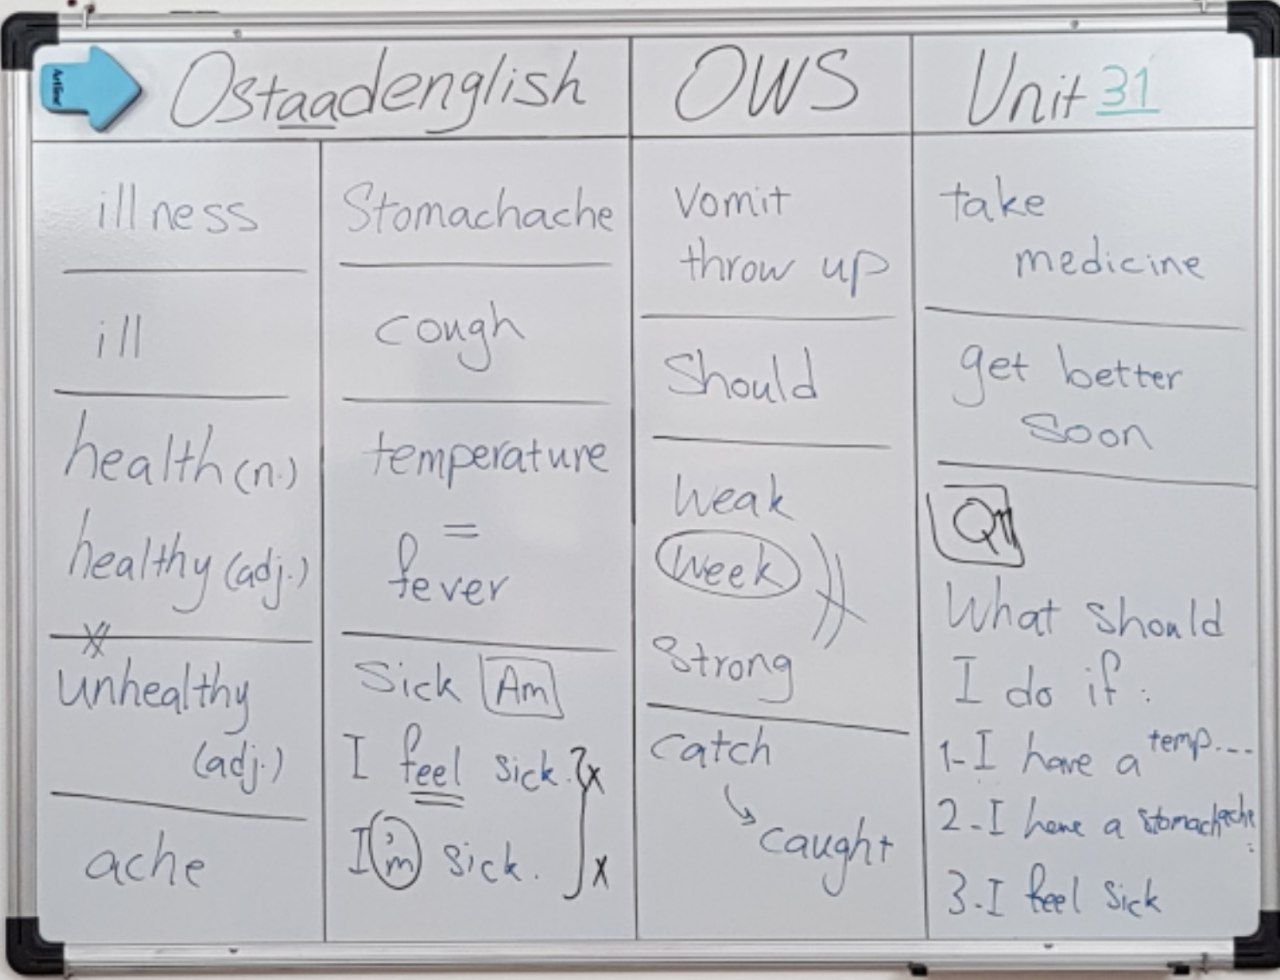 Artline
Ostaadenglish
OWS
Unit 31
illness
ill
health (n.)
healthy (adj.)
unhealthy
(adj.)
ache
Stomachache
cough
temperature
=
fever
Sick Am
I feel sick. x
I'm sick. x
Vomit
throw up
Should
Weak
Week
Strong
catch
caught
take
medicine
get better
soon
What should
I do if:
1-I have a temp....
2-I have a stomachache
3-I feel sick